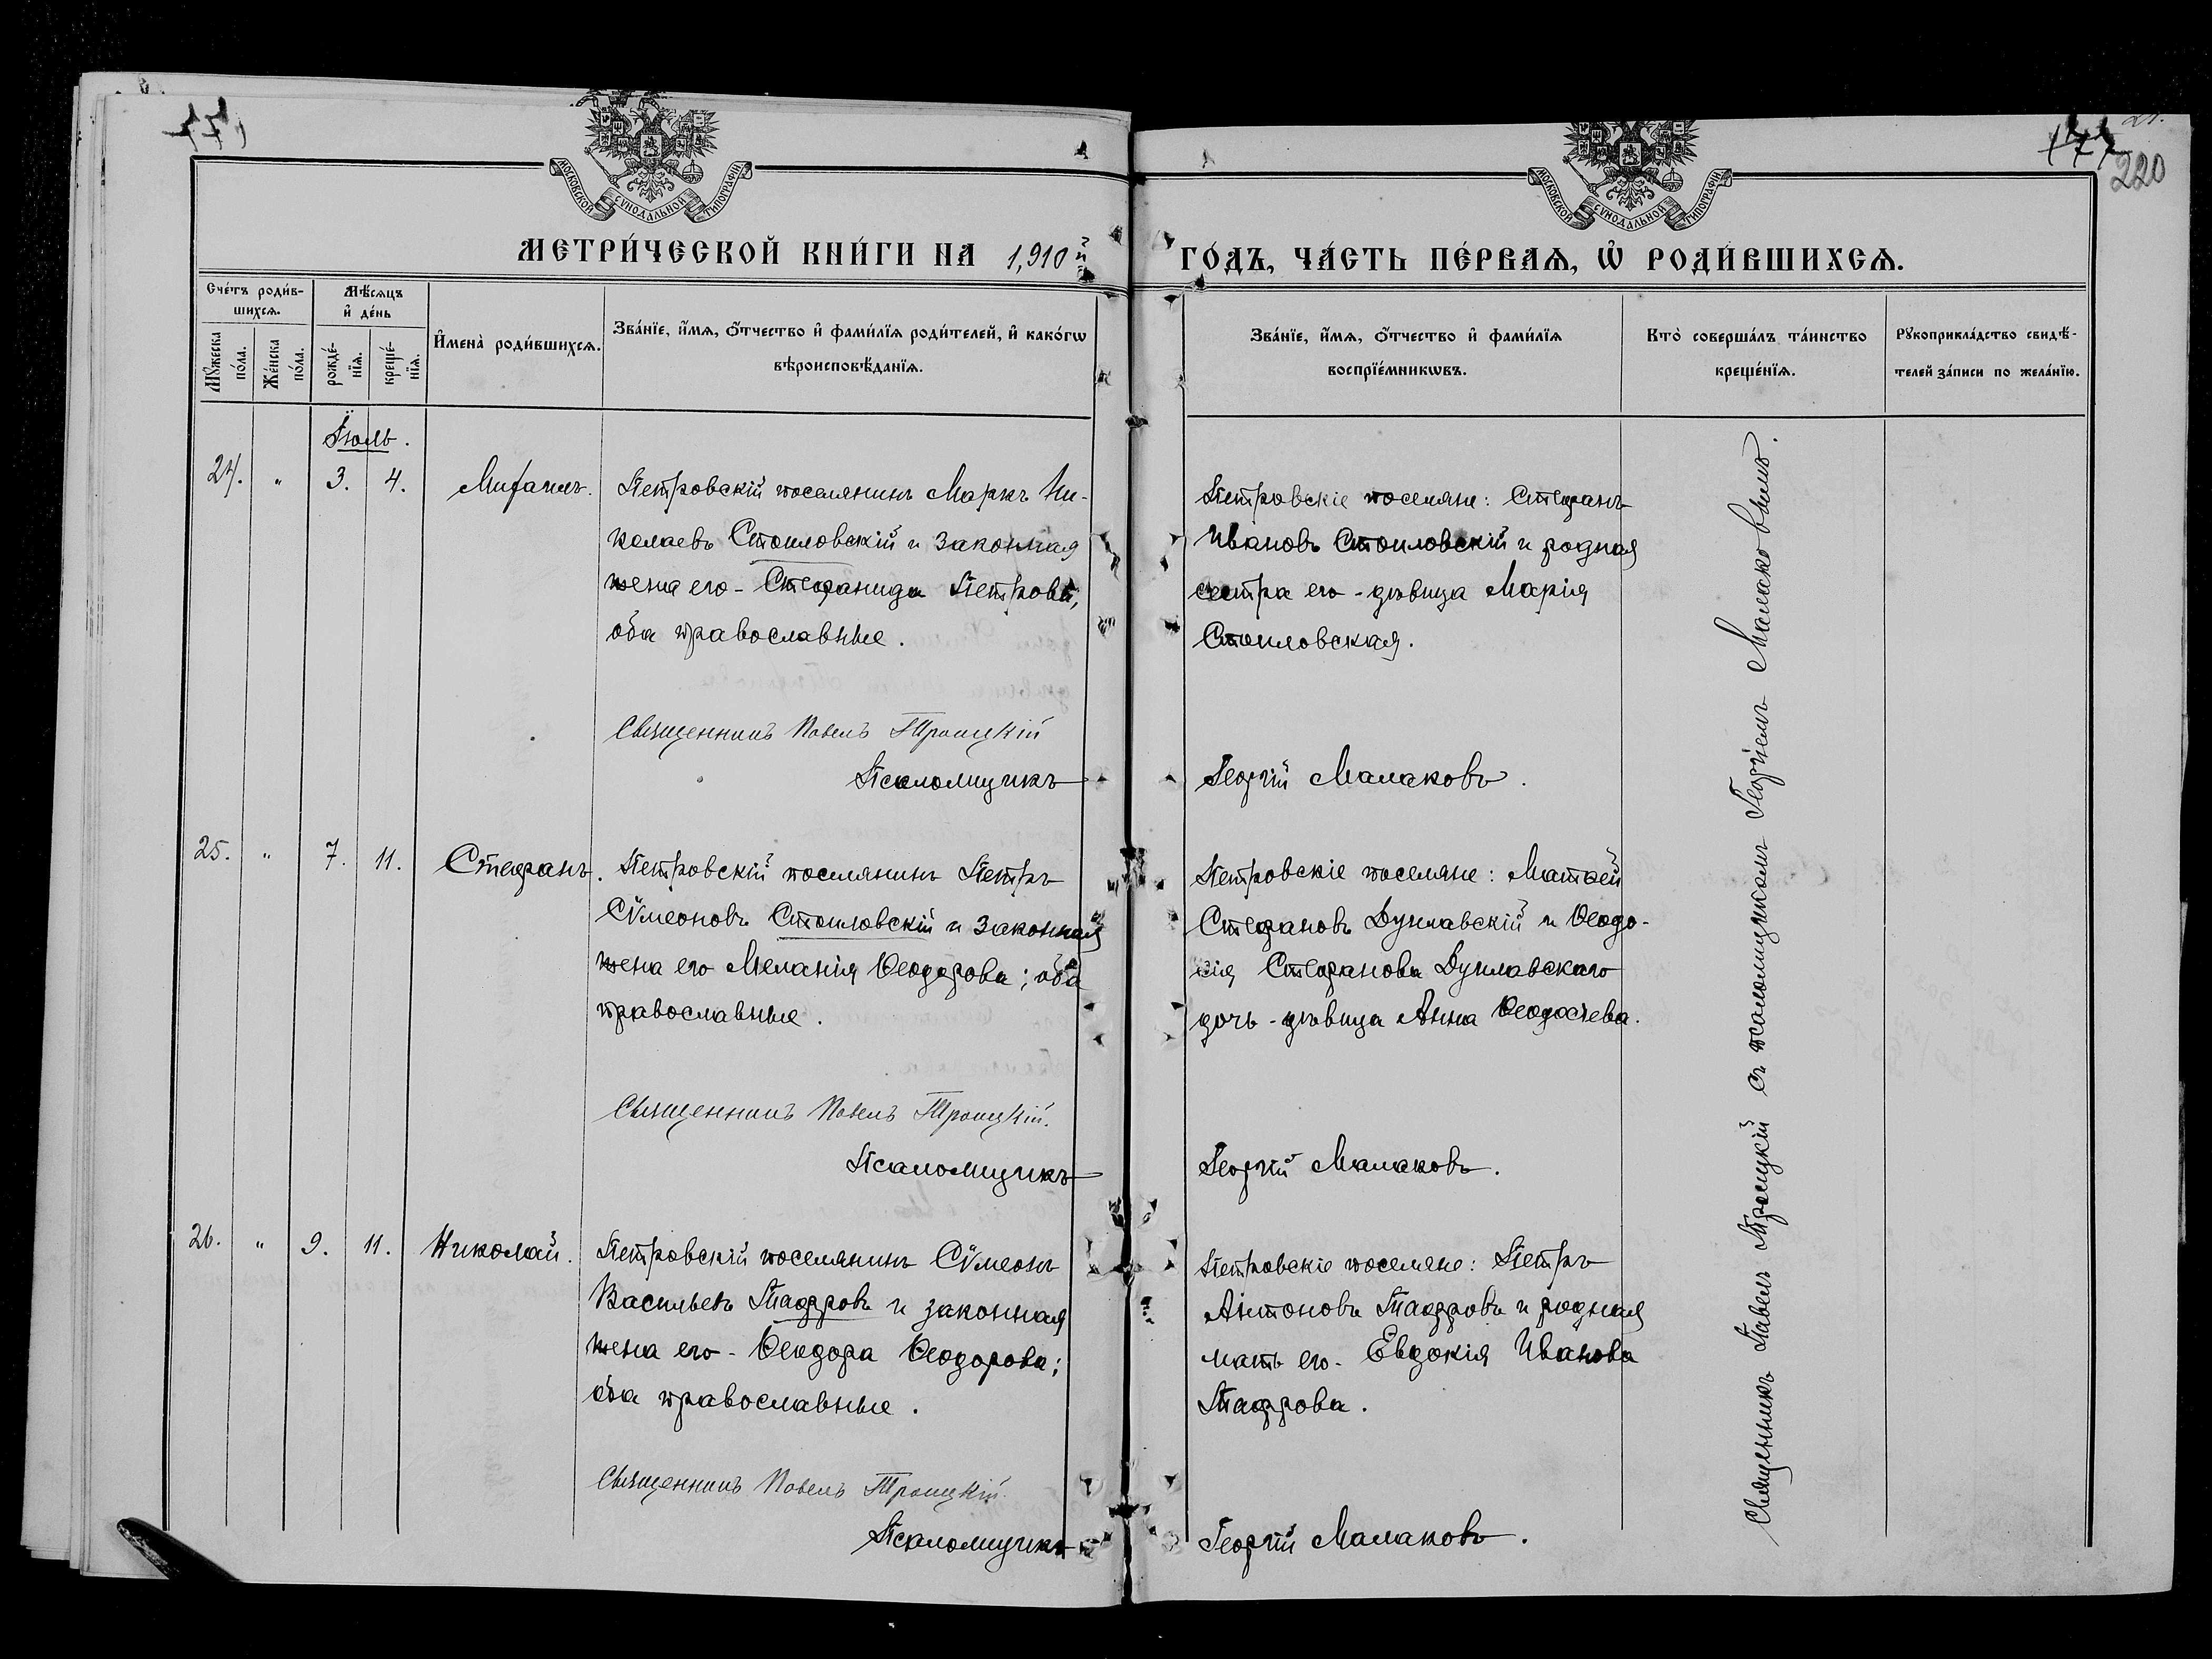 220
МОСКОВСКОЙ СѴНОДАЛЬНОЙ ТИПОГРАФІИ
МОСКОВСКОЙ СѴНОДАЛЬНОЙ ТИПОГРАФІИ
МЕТРИ́ЧЕСКОЙ КНИ́ГИ НА 1,910й
ГО́ДЪ, ЧА́СТЬ ПЕ́РВАѦ, Ѡ҆ РОДИ́ВШИХСѦ.
Сче́тъ роди́в-
шихсѧ.
Мꙋ́жеска по́ла.
Же́нска по́ла.
Мѣ́сѧцъ
и҆ де́нь
рожде́-
нїѧ.
креще́-
нїѧ.
И҆мена̀ роди́вшихсѧ.
Зва́нїе, и҆́мѧ, ѻ҆́тчество и҆ фами́лїѧ роди́телей, и҆ како́гѡ
вѣроисповѣ́данїѧ.
Зва́нїе, и҆́мѧ, ѻ҆́тчество и҆ фами́лїѧ
воспрїе́мникѡвъ.
Кто̀ соверша́лъ та́инство
креще́нїѧ.
Рꙋкоприкла́дство свидѣ́-
телей за́писи по жела́нїю.
Іюль.
24. " 3. 4. Михаилъ. Петровскій поселянинъ Маркъ Ни-
колаевъ Стоиловскій и законная
жена его - Стефанида Петрова,
оба православные.
Священникъ Павелъ Троицкій
Псаломщикъ
Петровскіе поселяне: Стефанъ
Ивановъ Стоиловскій и родная
сестра его - дѣвица Марія
Стоиловская.
Георгій Малаковъ.
25. " 7. 11. Стефанъ. Петровскій поселянинъ Петръ
Сѵмеоновъ Стоиловскій и законная
жена его Меланія Ѳеодорова; оба
православные.
Священникъ Павелъ Троицкій.
Псаломщикъ
Петровскіе поселяне: Матѳей
Стефановъ Дуклавскій и Ѳеодо-
сія Стефанова Дуклавскаго
дочь - дѣвица Анна Ѳеодосіева.
Георгій Малаковъ.
26. " 9. 11. Николай. Петровскій поселянинъ Сѵмеонъ
Васильевъ Тафровъ и законная
жена его - Ѳеодора Ѳеодорова;
оба православные.
Священникъ Павелъ Троицкій.
Псаломщикъ
Петровскіе поселяне: Петръ
Антоновъ Тафровъ и родная
мать его - Евдокія Иванова
Тафрова.
Георгій Малаковъ.
Священникъ Павелъ Троицкій съ псаломщикомъ Георгіемъ Малаковымъ.